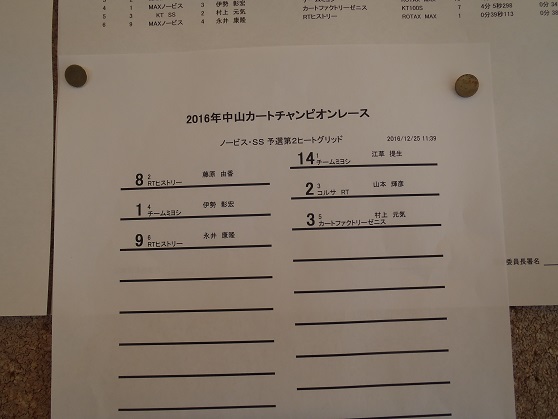 3 2
1 MAXノービス 3 伊勢 彰宏
5 KT SS 2 村上 元気
6 9 MAXノービス 4 永井 康隆
カートファクトリーゼニス KT100S 7 4分 5秒298 0分 34
RTヒストリー ROTAX MAX 1 0分39秒113 0分 38
2016年中山カートチャンピオンレース
ノービス・SS 予選第2ヒートグリッド 2016/12/25 11:39
14 1 江草 提生
チームミヨシ
8 2 藤原 由香
RTヒストリー
2 3 山本 輝彦
コルサ RT
1 4 伊勢 彰宏
チームミヨシ
3 5 村上 元気
カートファクトリーゼニス
9 6 永井 康隆
RTヒストリー
委員長署名